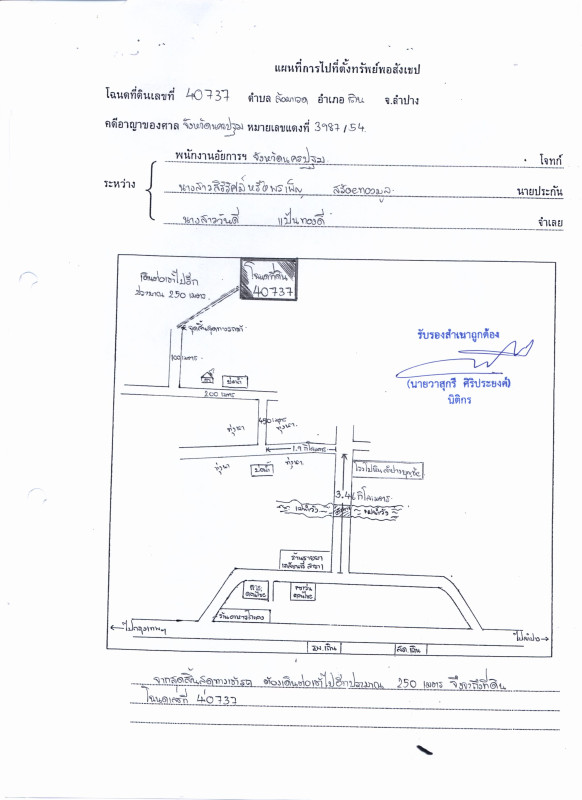 แผนที่การไปที่ตั้งทรัพย์พอสังเขป
โฉนดที่ดินเลขที่ 40737 ตำบล ล้อมแรด อำเภอ เถิน จ.ลำปาง
คดีอาญาของศาล จังหวัดนครปฐม หมายเลขแดงที่ 3987/54
พนักงานอัยการฯ จังหวัดนครปฐม โจทก์
ระหว่าง
นายประกัน
นางสาววันดี แป้นทองดี จำเลย
เดินต่อเข้าไปอีก
ประมาณ 250 เมตร
โฉนดที่ดิน
40737
จุดสิ้นสุดทางรถยนต์
100 เมตร
รับรองสำเนาถูกต้อง
(นายวาสุกรี ศิริประยงค์)
นิติกร
200 เมตร
450 เมตร
ทุ่งนา ทุ่งนา
1.9 กิโลเมตร
ทุ่งนา ทุ่งนา
3.46 กิโลเมตร
แม่น้ำวัง แม่น้ำวัง
ไปกรุงเทพฯ
ไปลำปาง
เถิน เถิน
จากจุดสิ้นสุดทางรถยนต์ ต้องเดินต่อเข้าไปอีกประมาณ 250 เมตร จึงจะถึงที่ดิน
โฉนดเลขที่ 40737